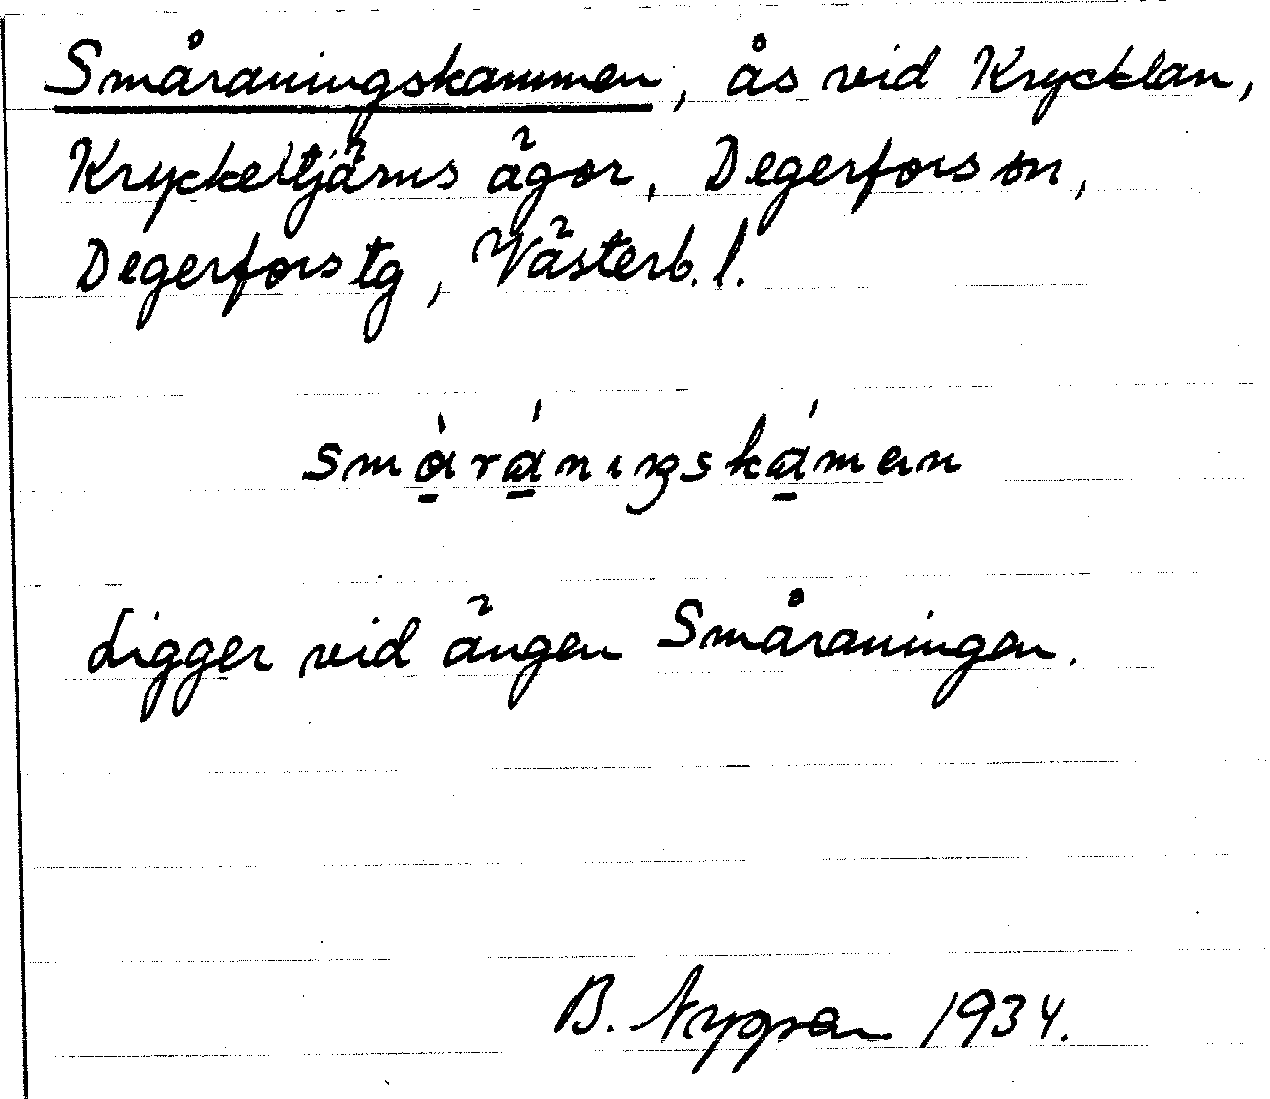 Småraningskammen, ås vid Krycklan,
Kryckeltjärns ägor, Degerfors sn,
Degerfors tg, Västerb. l.
småránıŋskámen
Ligger vid ängen Småraningen.
B. 1934.